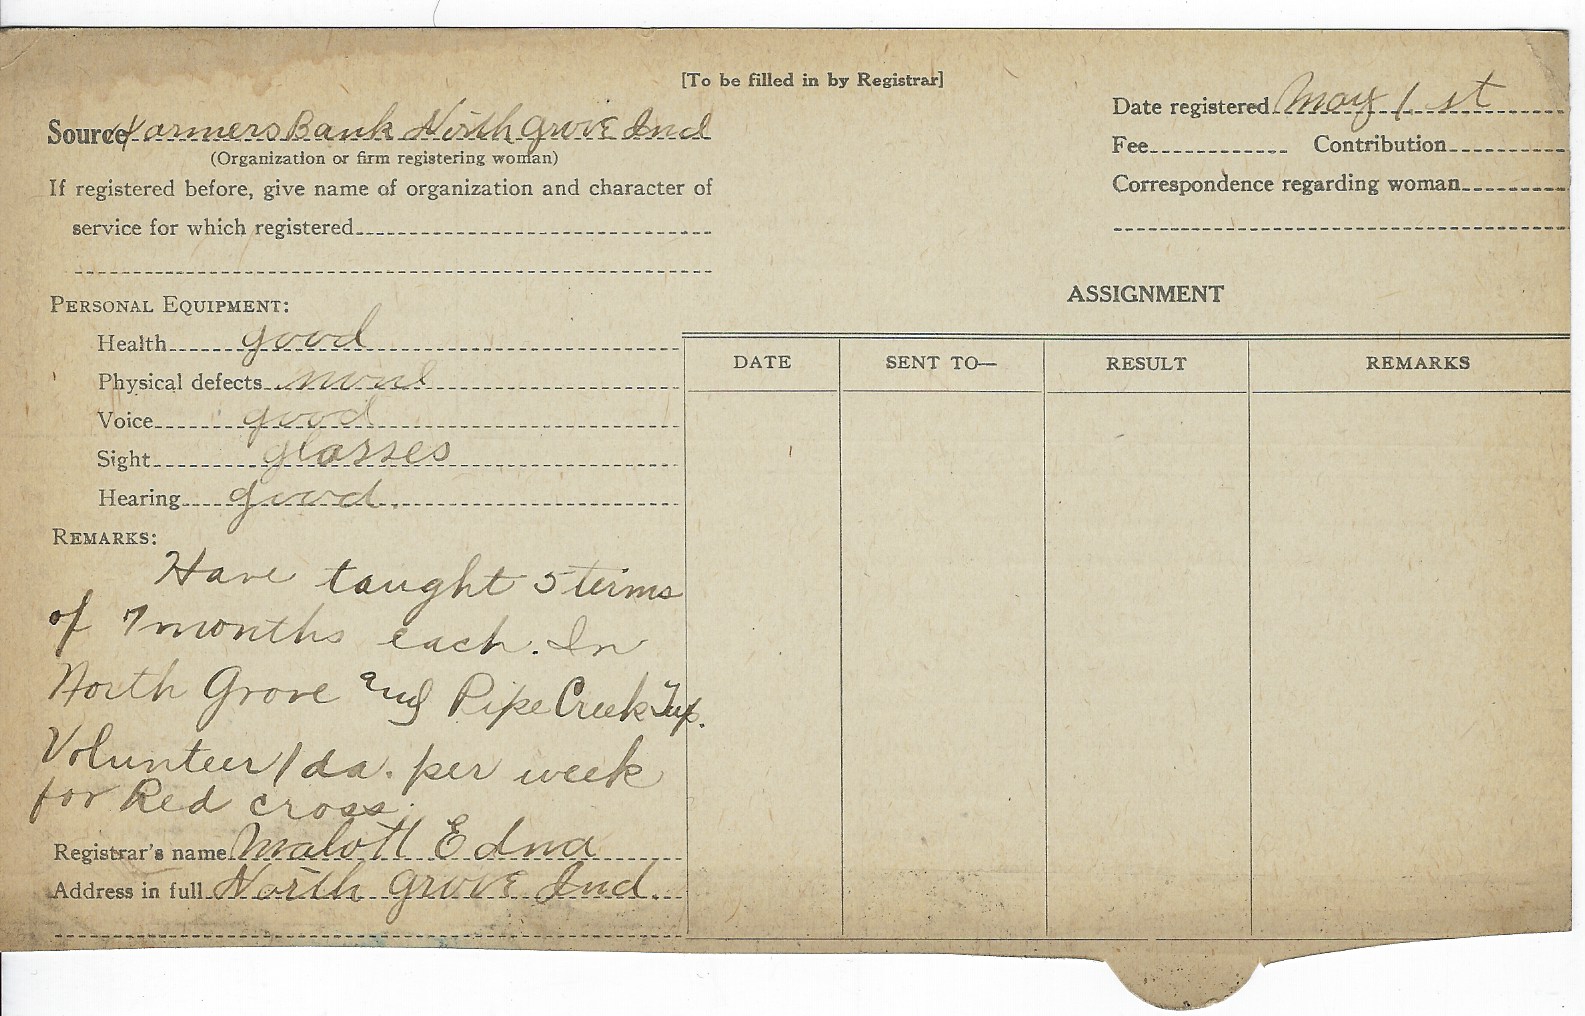 [To be filled in by Registrar]
Source Farmers Bank North Grove Ind
(Organization or firm registering woman)
If registered before, give name of organization and character of
service for which registered
Date registered May 1st
Fee Contribution
Correspondence regarding woman
PERSONAL EQUIPMENT:
Health good
Physical defects none
Voice good
Sight glasses
Hearing good.
REMARKS:
Have taught 5 terms
of 7 months each. In
North Grove and Pipe Creek Twp.
Volunteer 1 da. per week
for Red cross.
Registrar's name Malott Edna
Address in full North Grove Ind.
ASSIGNMENT
DATE SENT TO— RESULT REMARKS